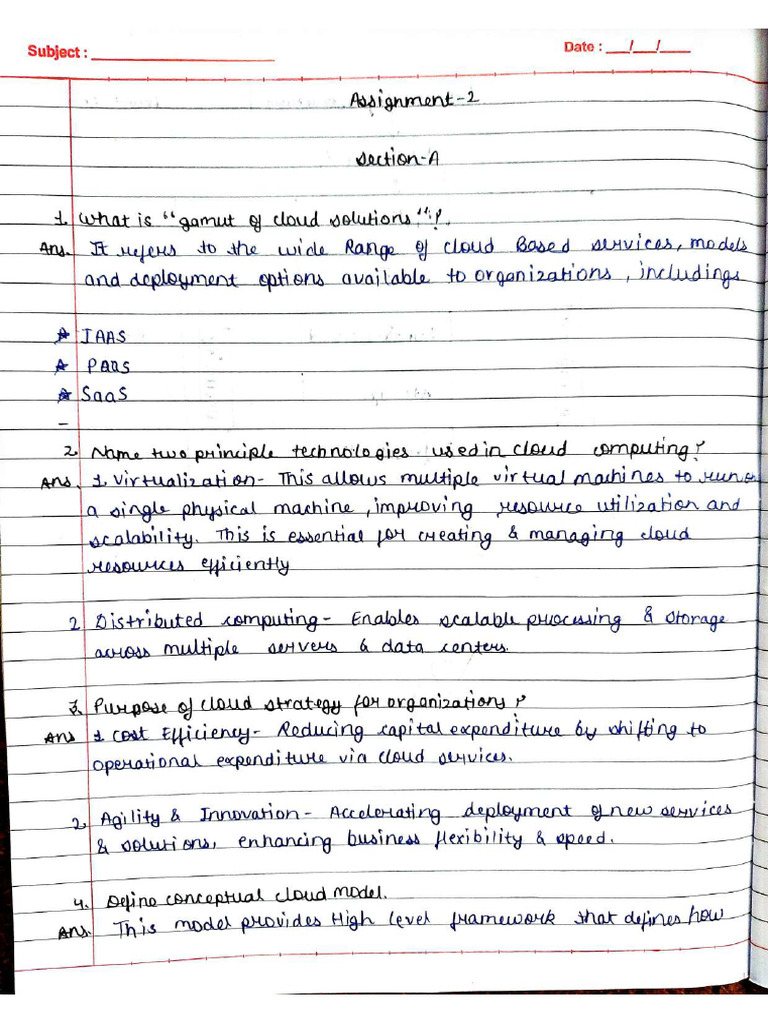 Subject : ____________________ Date : ___/___/____
Assignment-2
Section-A
1. What is "gamut of cloud solutions"?
Ans. It refers to the wide Range of cloud Based services, models
and deployment options available to organizations, includings
☆ IAAS
☆ PAas
☆ SaaS
-
2. Name two principle technologies used in cloud computing?
Ans. 1. Virtualization- This allows multiple virtual machines to run on
a single physical machine, improving resource utilization and
scalability. This is essential for creating & managing cloud
resources efficiently
2 Distributed computing- Enables scalable processing & storage
across multiple servers & data centers.
3. Purpose of cloud strategy for organizations?
Ans 1 Cost Efficiency- Reducing capital expenditure by shifting to
operational expenditure via cloud services.
2. Agility & Innovation- Accelerating deployment of new services
& solutions, enhancing business flexibility & speed.
4. Define conceptual cloud model.
Ans. This model provides High level framework that defines how